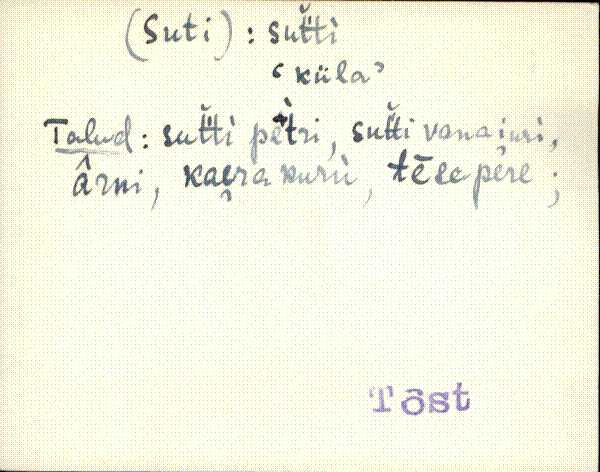 (Suti) : sut̆t̆i
‘küla’
Talud : sut̆t̆i petri, sut̆t̆i vanajuri,
ârni, kaęra kuru, tēse pere ;
Tôst